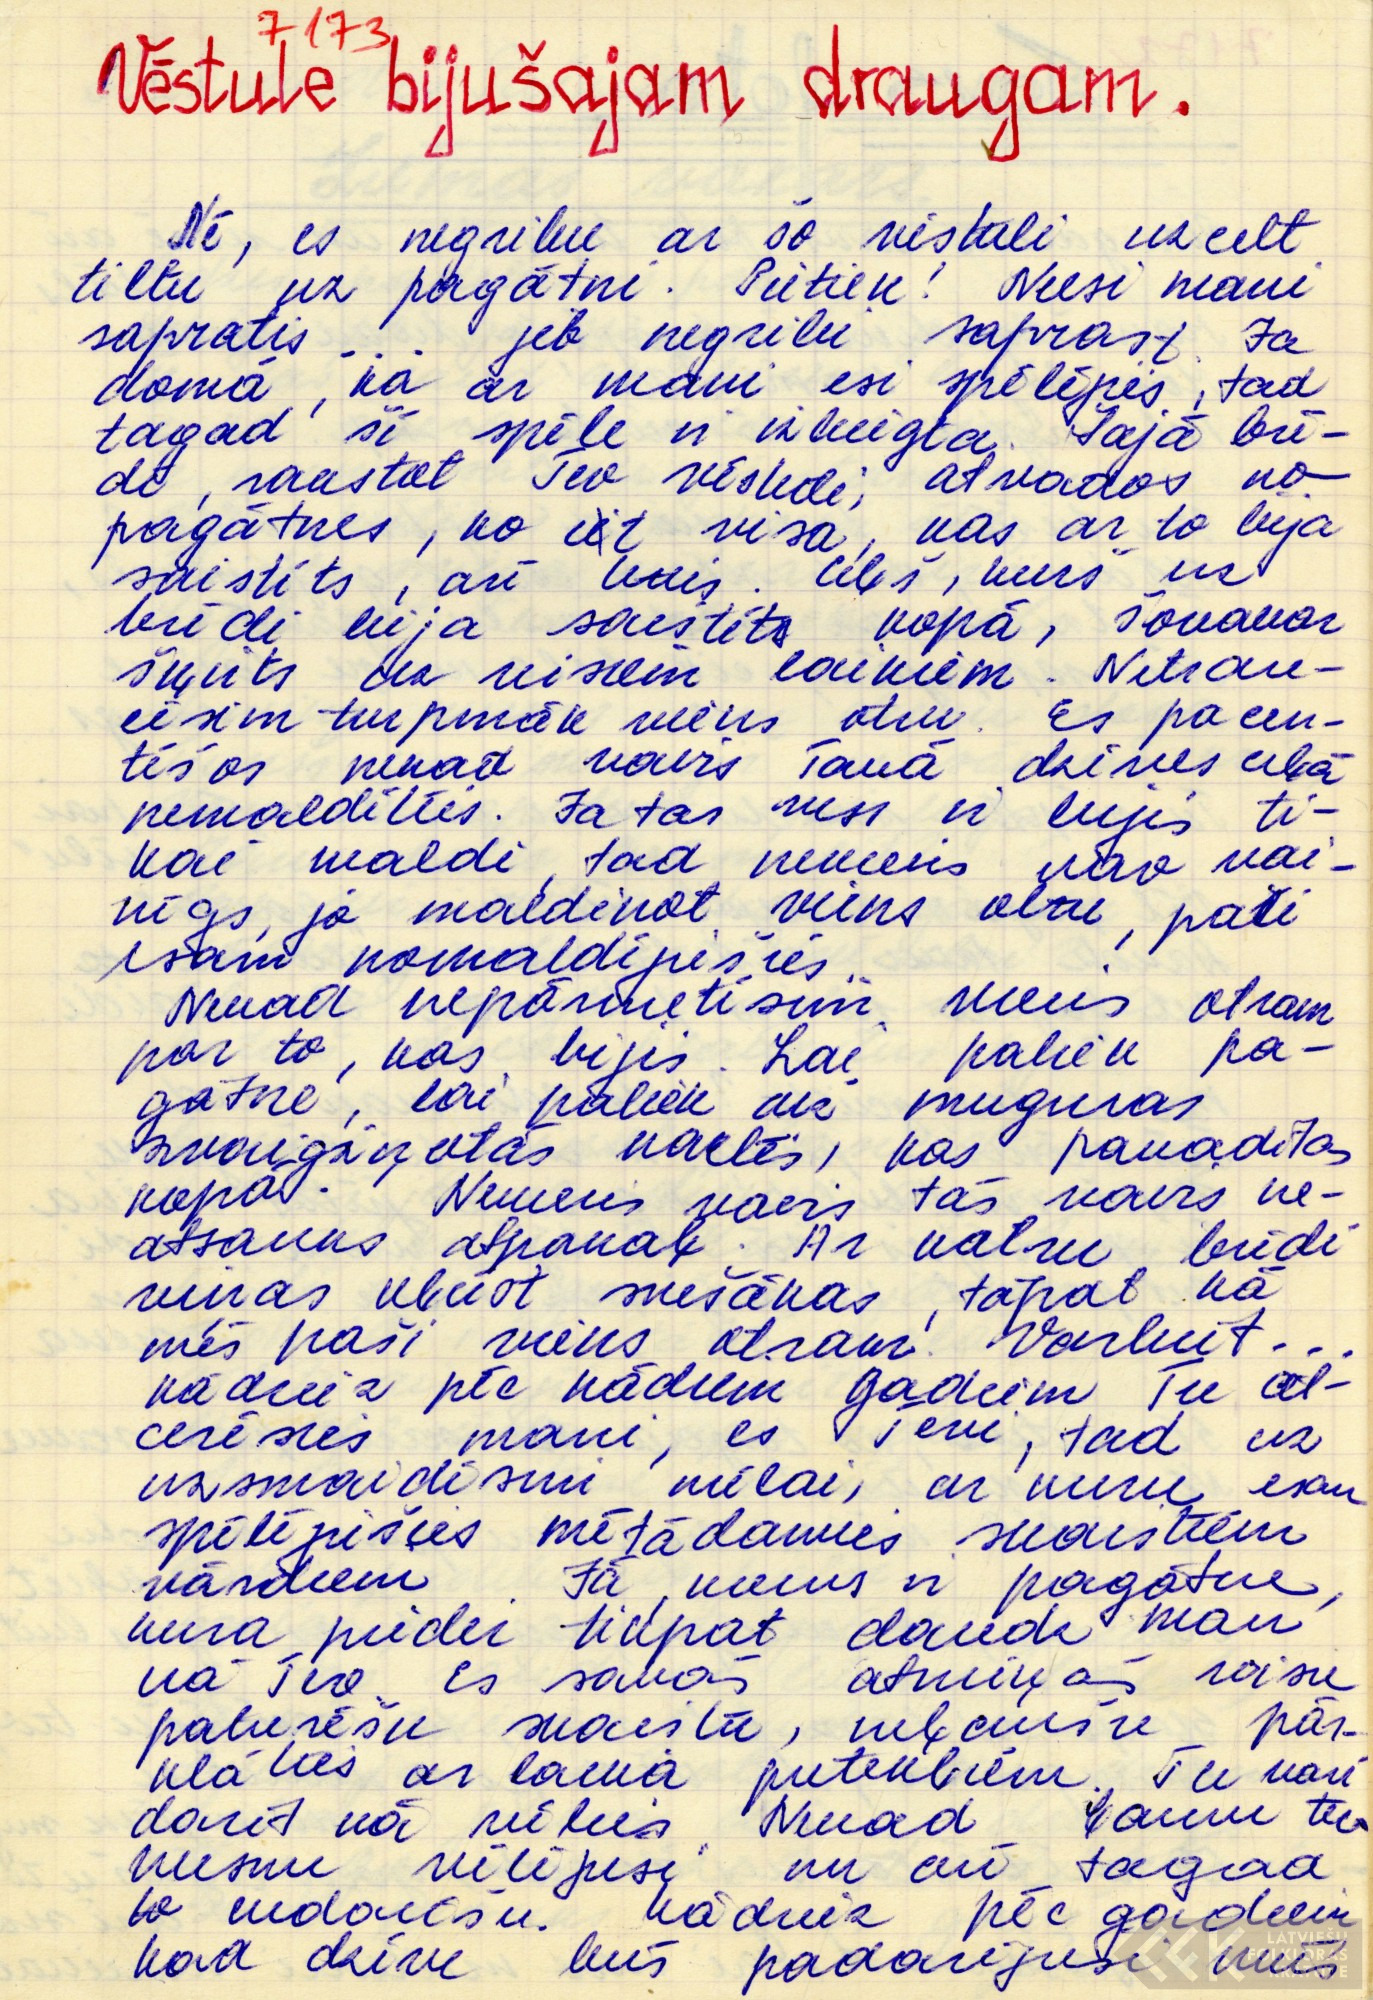 7173
Vēstule bijušajam draugam.
Nē, es negribu ar šo vēstuli uzcelt
tiltu uz pagātni. Pietiek! Neesi mani
sapratis... jeb negribi saprast. Ja
domā, ka ar mani esi spēlējies, tad
tagad šī spēle ir izbeigta. Šajā brī-
dī, rakstot Tev vēstuli, atvados no
pagātnes, no visa, kas ar to bija
saistīts, arī Ceļš, kurš uz
brīdi bija saistīts kopā, šovakar
šķirts uz visiem laikiem. Netrau-
cēsim turpmāk viens otru. Es pacen-
tīšos nekad vairs Tavā dzīves ceļā
nemaldīties. Ja tas viss ir bijis ti-
kai maldi, tad neviens nav vai-
nīgs, jo maldinot viens otru, paši
esam nomaldījušies.
Nekad nepārmetīsim viens otram
par to, kas bijis. Lai paliek pa-
gātne, lai paliek aiz muguras
zvaigžņotās naktis, kas pavadītas
kopā. Neviens vairs tās vairs ne-
atsauks atpakaļ. Ar katru brīdi
viņas kļūst svešākas, tāpat kā
mēs paši viens otram. Varbūt...
kādreiz pēc kādiem gadiem Tu at-
cerēsies mani, es Tevi, tad uz
uzsmaidīsim mīlai, ar kuru esam
spēlējušies mētādamies skaistiem
vārdiem. Jā, mums ir pagātne,
kura pieder tikpat daudz man
kā Tev. Es savās atmiņās visu
paturēšu skaistu, neļaušu pār-
klāties ar laika putekļiem. Tu vari
darīt kā vēlies. Nekad ļaunu tev
neesmu vēlējusi un arī tagad
to nedarīšu. Kādreiz pēc gadiem
kad dzīve būs padarījusi mūs
LATVIEŠU
FOLKLORAS
KRĀTUVE